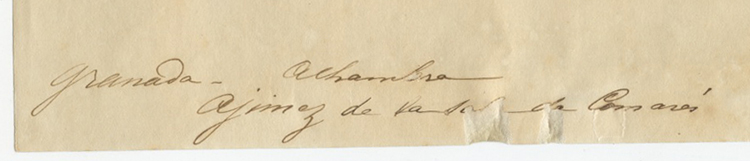 Granada - Alhambra
Ajimez de la Sal de Comares